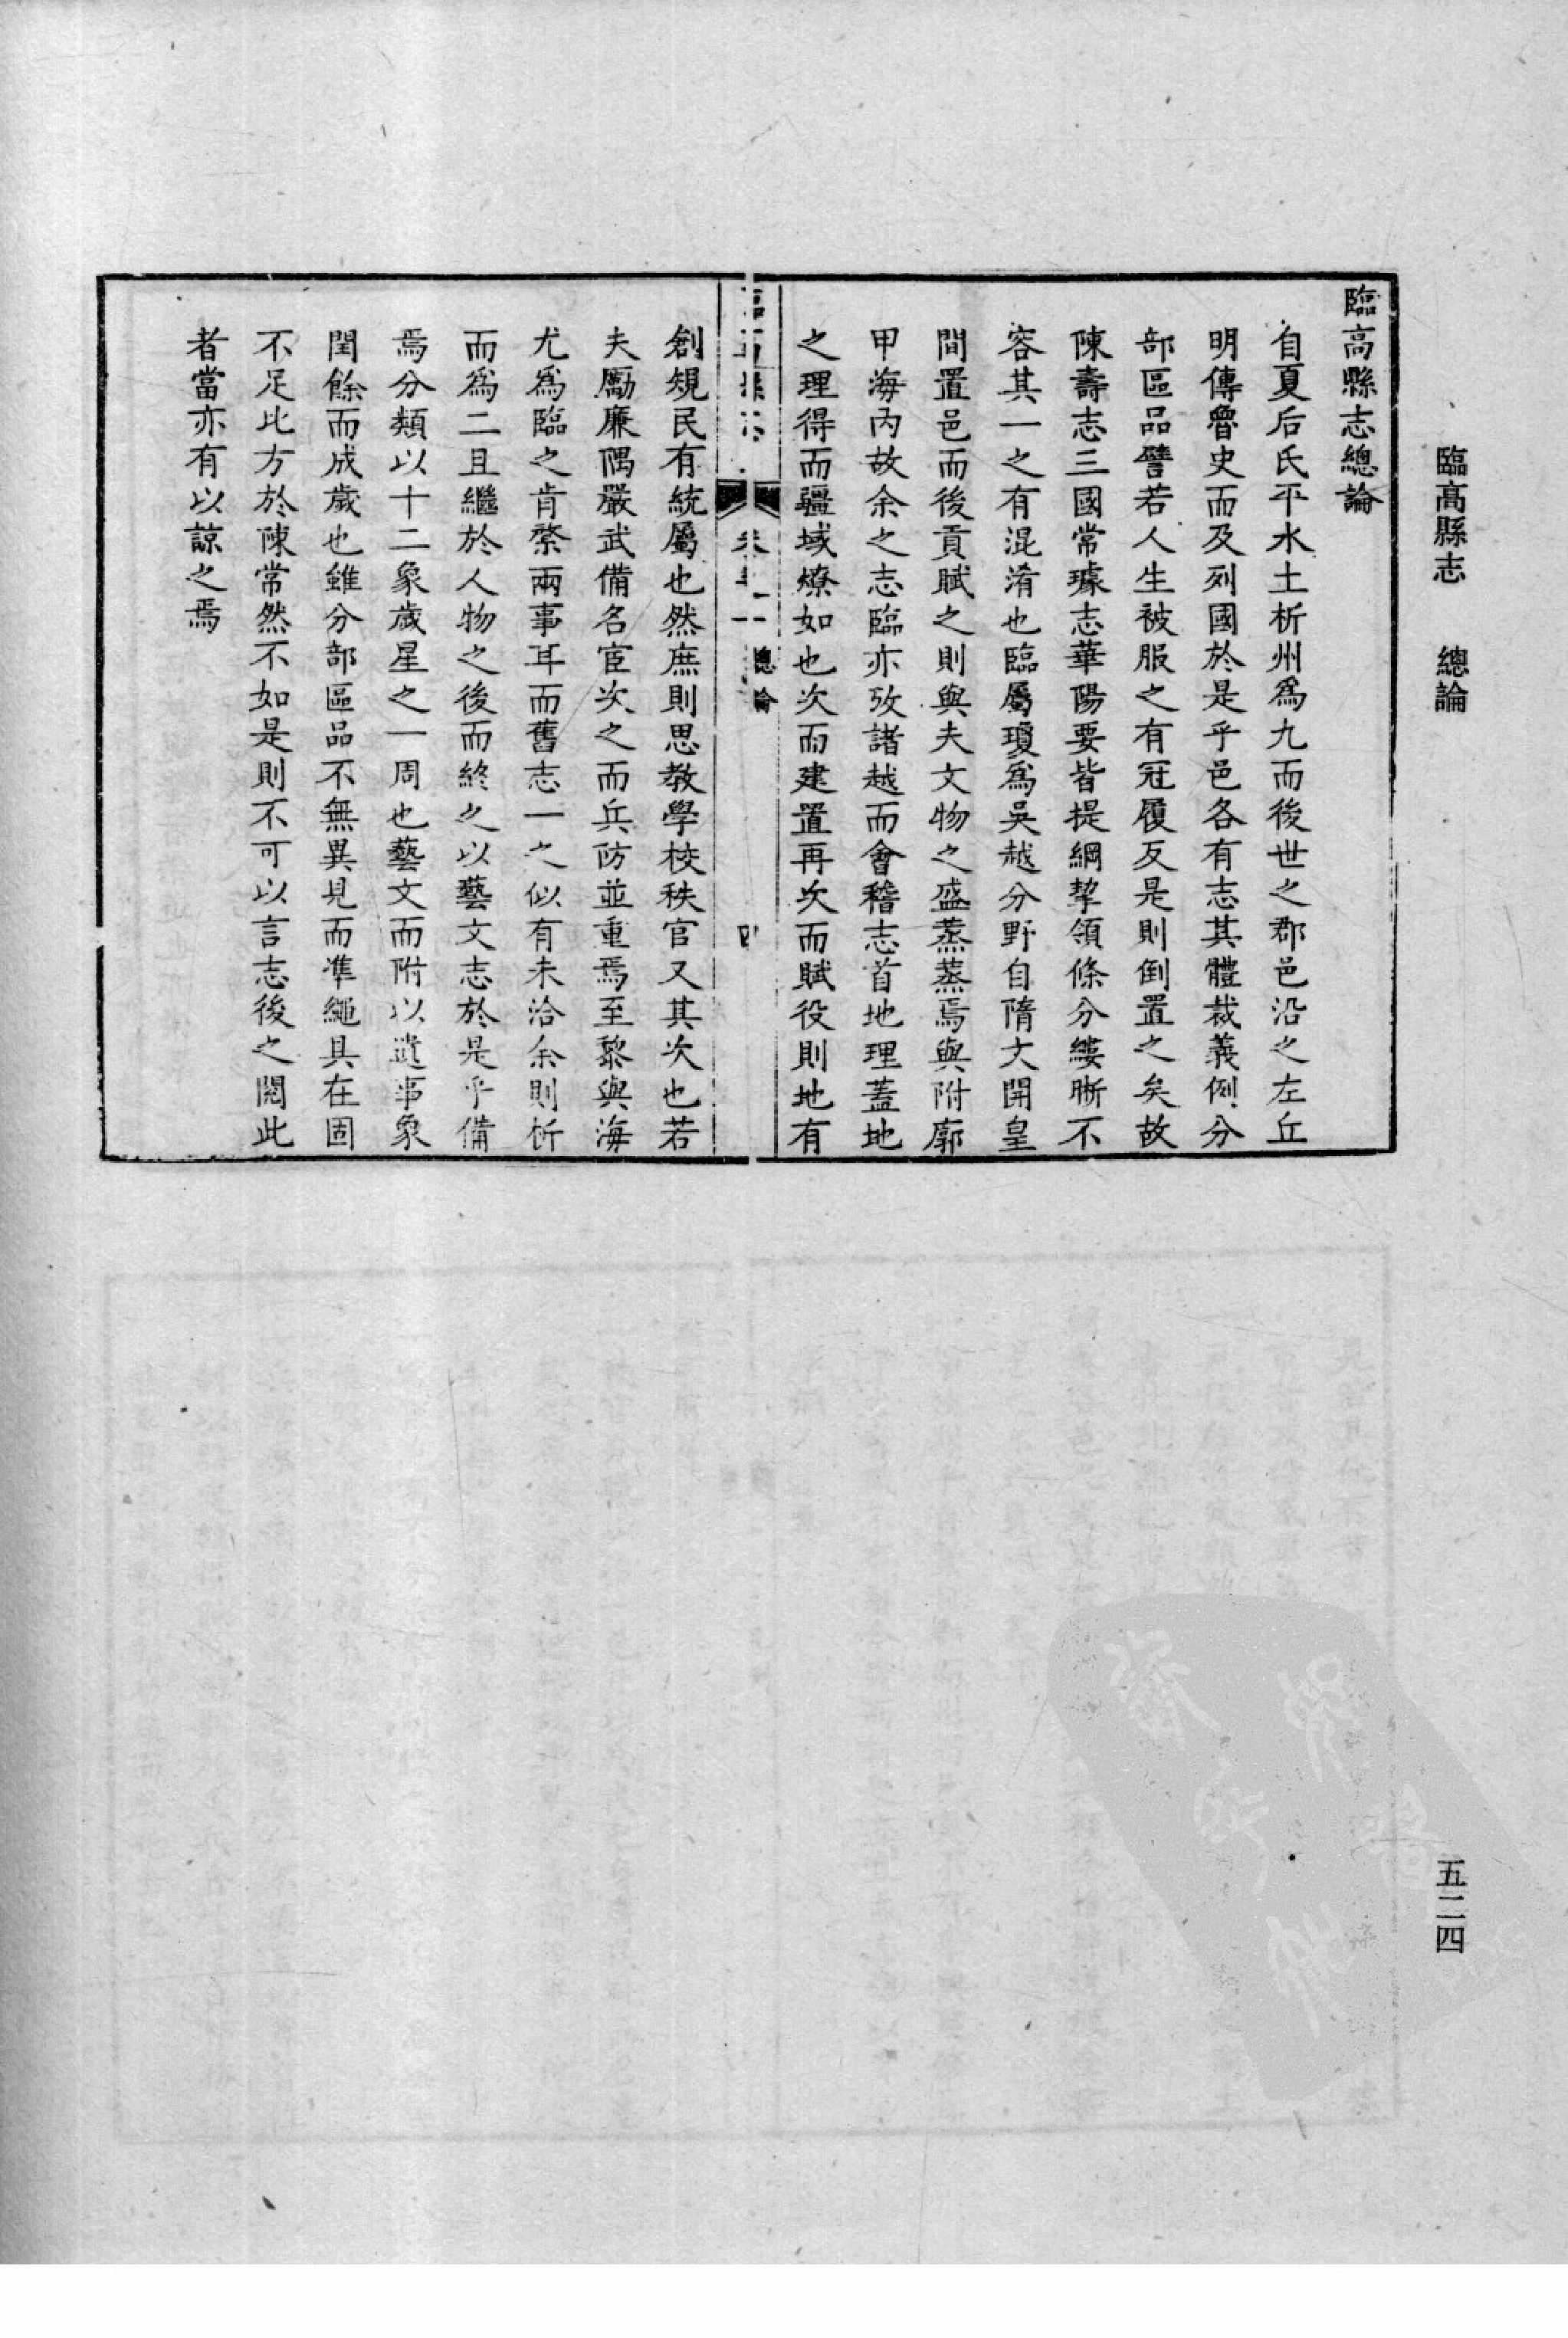 臨高縣志　總論
五二四
臨高縣志總論
自夏后氏平水土析州爲九而後世之郡邑沿之左丘
明傳魯史而及列國於是乎邑各有志其體裁義例分
部區品譬若人生被服之有冠履反是則倒置之矣故
陳壽志三國常璩志華陽要皆提綱挈領條分縷晰不
容其一之有混淆也臨屬瓊爲吳越分野自隋文開皇
間置邑而後貢賦之則與夫文物之盛蒸蒸焉與附廓
甲海內故余之志臨亦攷諸越而會稽志首地理蓋地
之理得而疆域燎如也次而建置再次而賦役則地有
總論
創規民有統屬也然庶則思教學校秩官又其次也若
夫勵廉隅嚴武備名宦次之而兵防並重焉至黎與海
尤爲臨之肯綮兩事耳而舊志一之似有未洽余則析
而爲二且繼於人物之後而終之以藝文志於是乎備
焉分類以十二象歲星之一周也藝文而附以遺事象
閏餘而成歲也雖分部區品不無異見而準繩具在固
不足比方於陳常然不如是則不可以言志後之閱此
者當亦有以諒之焉